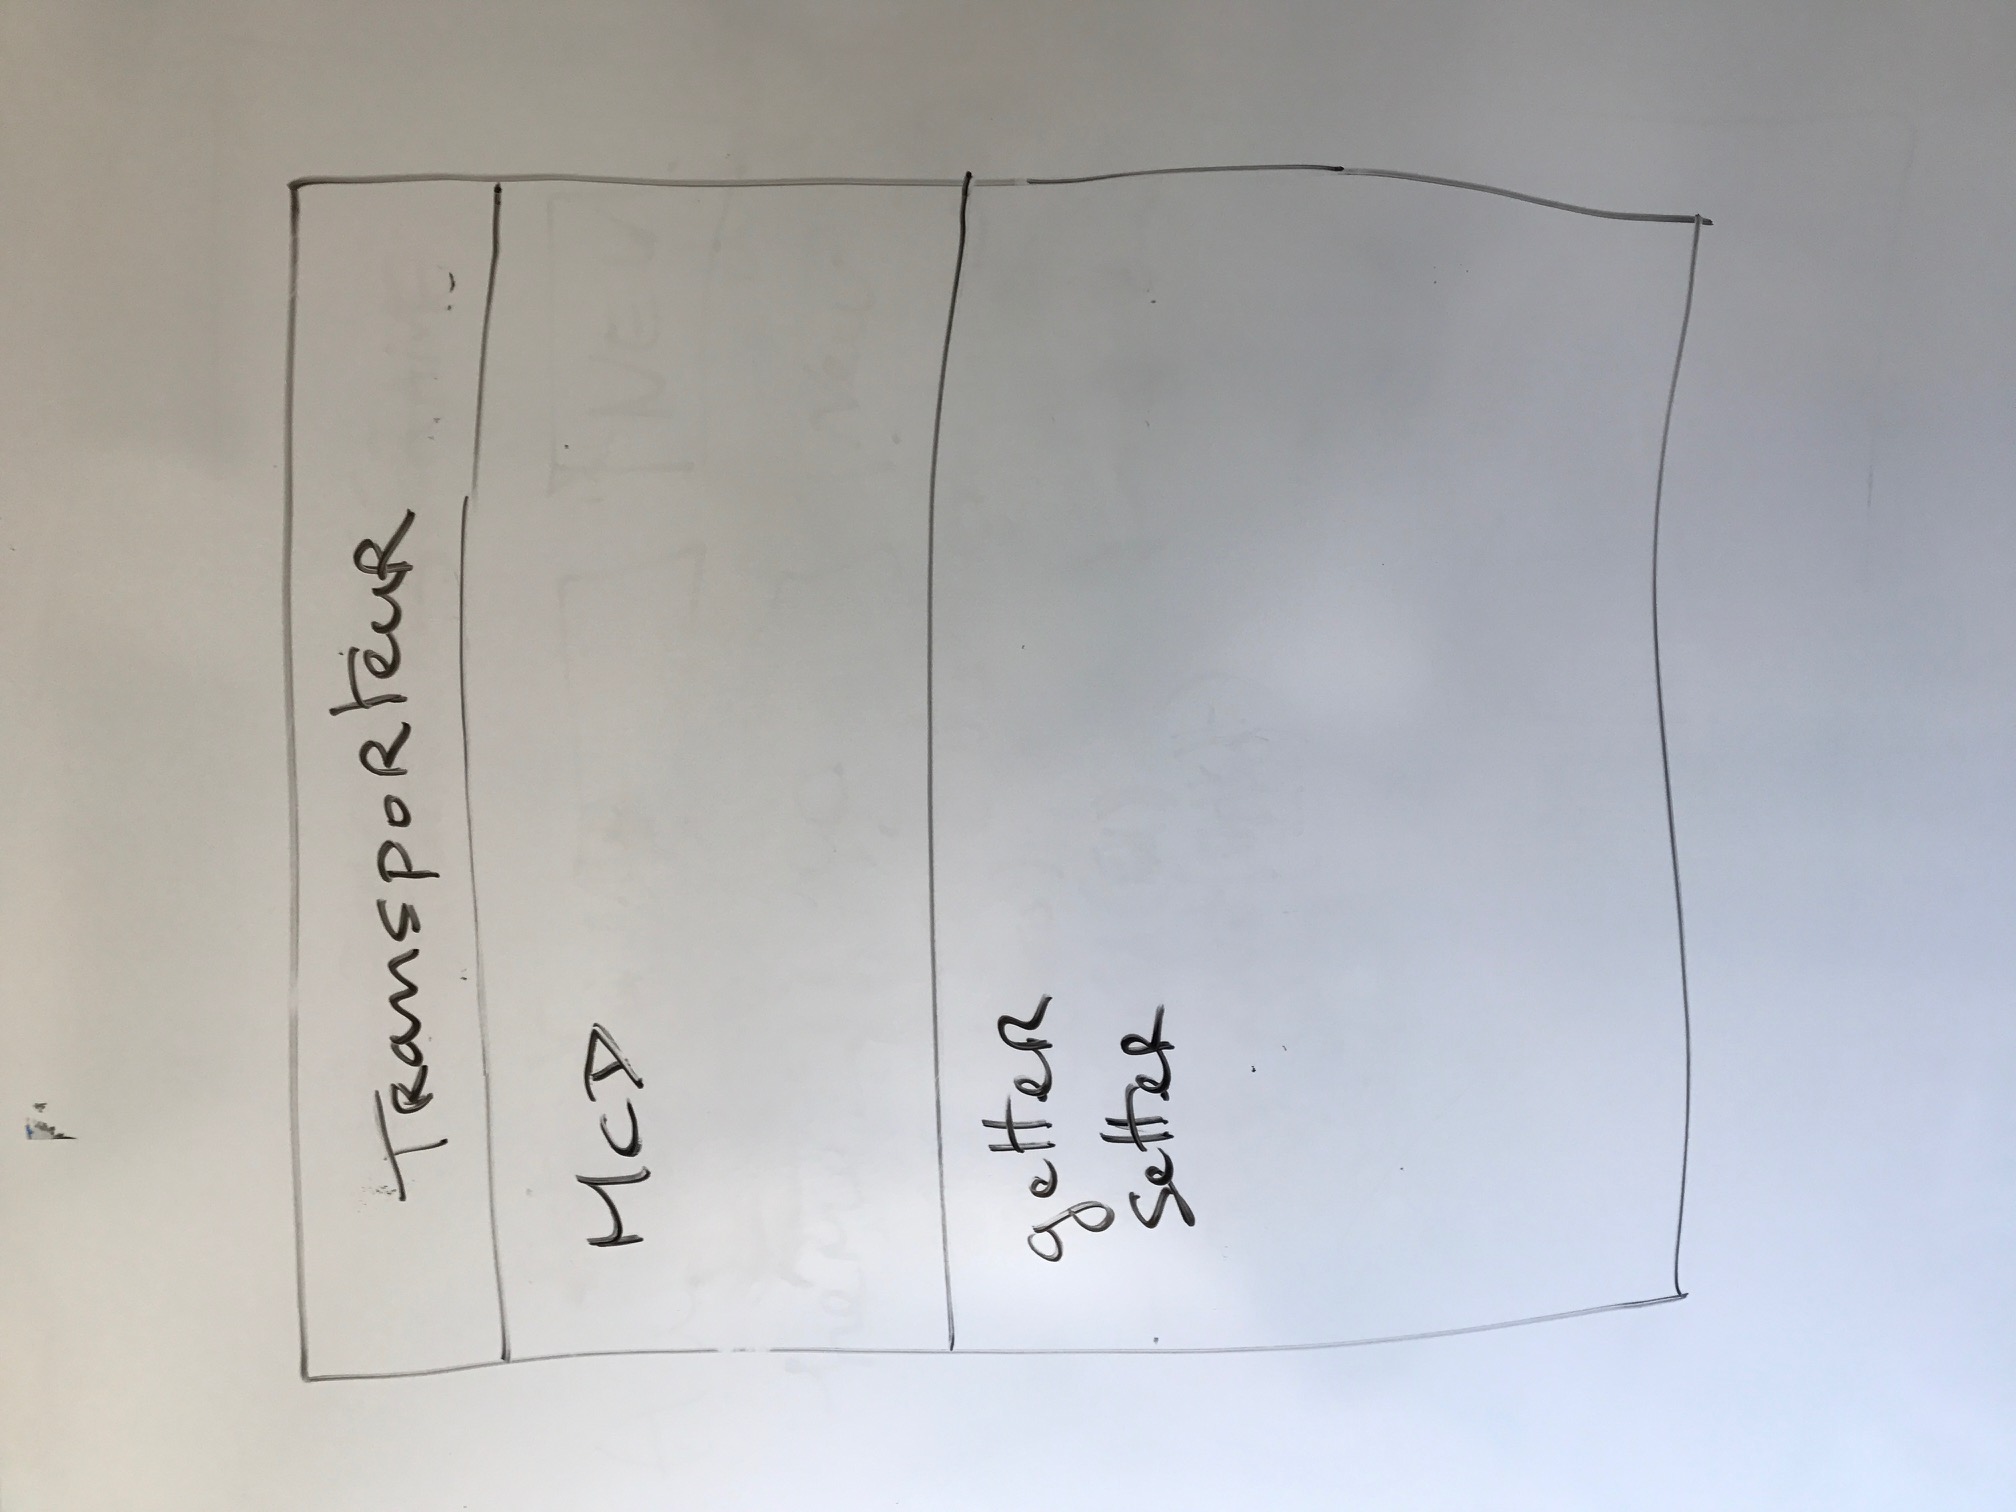 Transporteur
MCD
getter
setter